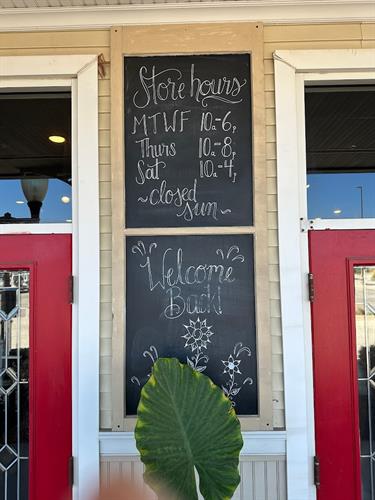 Store hours
MTWF 10a-6p
Thurs 10a-8p
Sat 10a-4p
~closed
sun~
Welcome
Back!